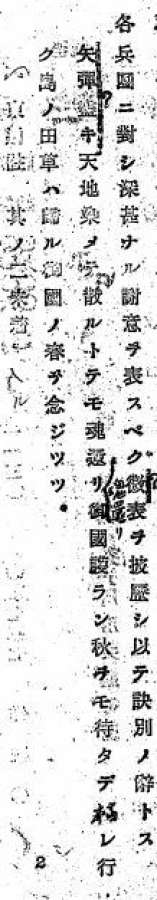 各兵團ニ對シ深甚ナル謝意ヲ表スベク微衷ヲ披歴シ以テ訣別ノ辭トス
矢彈盡キ天地染メテ散ルトテモ魂還リ魂還リ御國護ラン秋ヲモ待タデ枯レ行
ク島ノ田草ハ歸ル御國ノ春ヲ念ジツツ
2